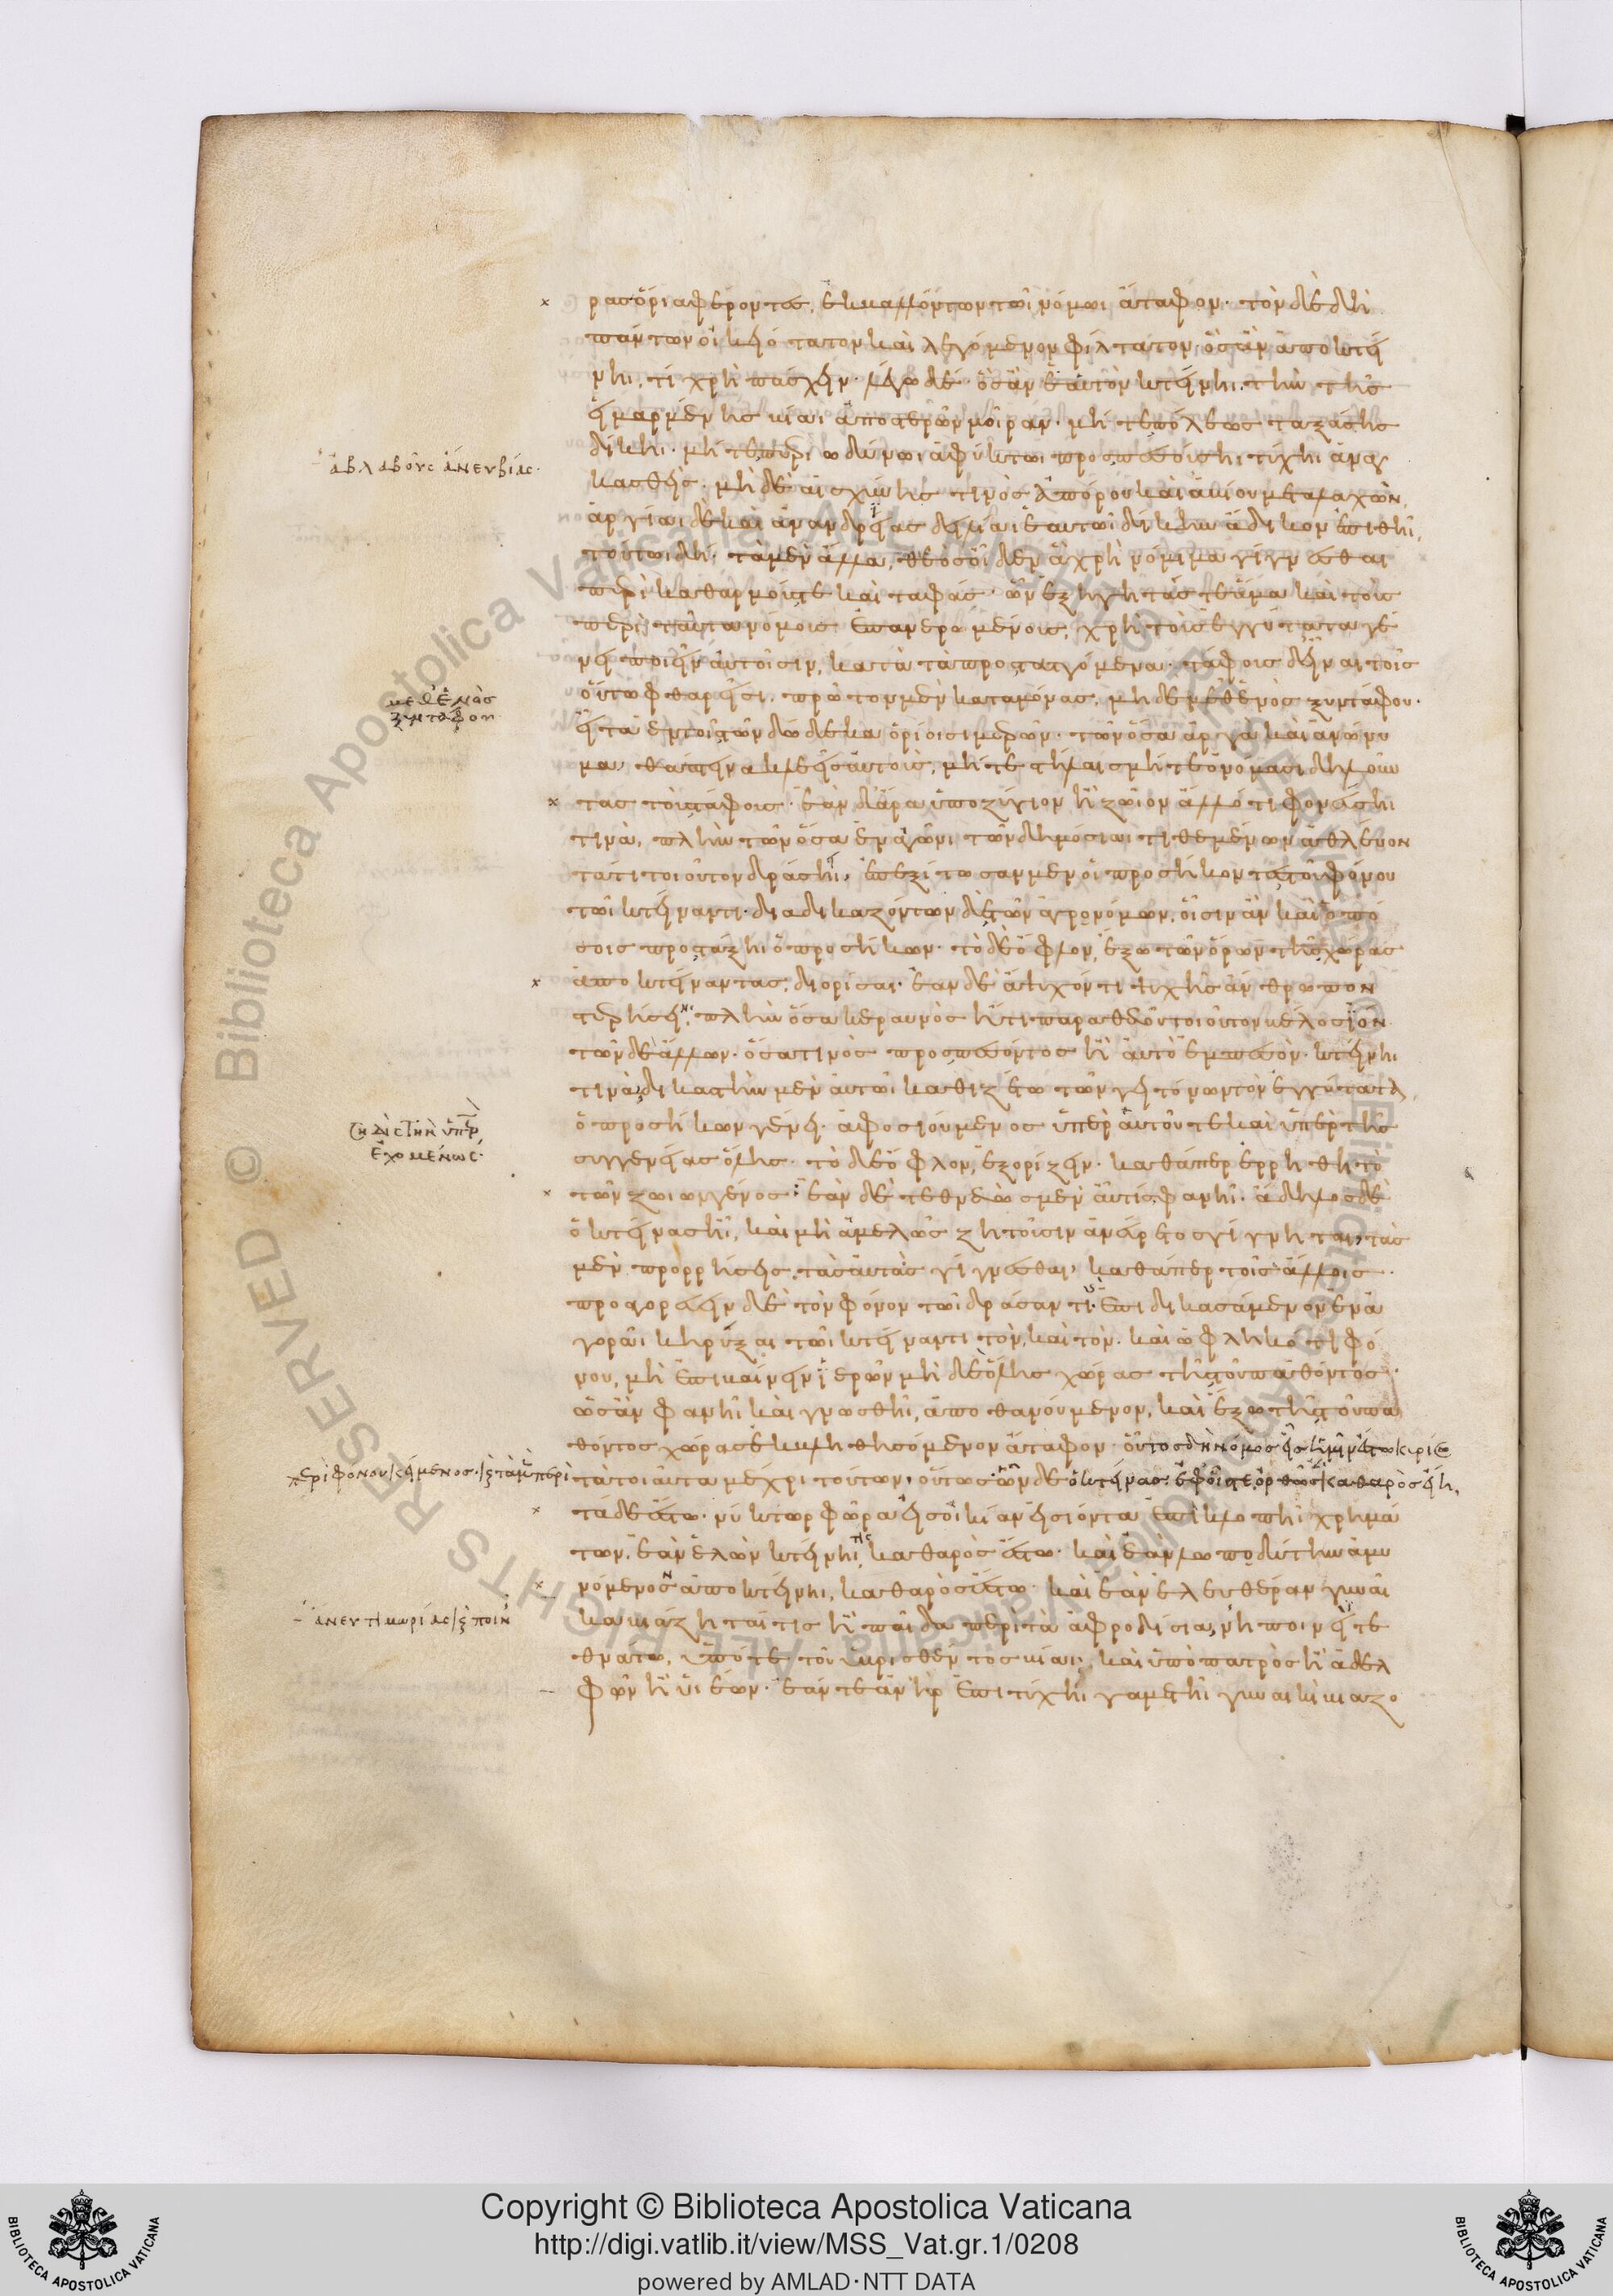 ρας ὅρια φέροντες, ἐκβαλλόντων τῶι νόμωι ἄταφον· τὸν δὲ δὴ
πάντων οἰκειότατον καὶ λεγόμενον φίλτατον ὃς ἂν ἀποκτεί
νηι, τί χρὴ πάσχειν· λέγω δέ· ὃς ἂν ἑαυτὸν κτείνηι· τὴν τῆς
εἱμαρμένης βίαι ἀποστερῶν μοῖραν· μήτε πόλεως ταξάσης
δίκηι· μήτε περιωδύνωι ἀφύκτωι προσπεσούσηι τύχηι ἀναγ
ἀβλαβοῦς ἄνευ βίας·
κασθείς· μηδὲ αἰσχύνης τινὸς ἀπόρου καὶ ἀβίου μεταλαχών,
ἀργίαι δὲ καὶ ἀνανδρίας δειλίαι ἑαυτῶι δίκην ἄδικον ἐπιθῆι,
τούτωι δὴ· τὰ μὲν ἄλλα, θεὸς οἶδεν ἃ χρὴ νόμιμα γίγνεσθαι
περὶ καθαρμούς τε καὶ ταφάς· ὧν ἐξηγητάς τε ἅμα καὶ τοὺς
περὶ ταῦτα νόμους ἐπανερομένους, χρὴ τοὺς ἐγγύτατα γέ
νει ποιεῖν αὐτοῖσιν, κατὰ τὰ προσταττόμενα· τάφους δ' εἶναι τοῖς
οὕτω φθαρεῖσι, πρῶτον μὲν κατὰ μόνας, μηδὲ μεθ' ἑνὸς ξυντάφου·
μεθ' ἑνὸς
ξύνταφον
εἶτα ἐν τοῖς τῶν δώδεκα ὁρίοισι μερῶν· τῶν ὅσα ἀργὰ καὶ ἀνώνυ
μα, θάπτειν ἀκλεεῖς αὐτούς, μήτε στήλαις μήτε ὀνόμασι δηλοῦν
τας τοὺς τάφους· ἐὰν δ' ἄρα ὑποζύγιον ἢ ζῶιον ἄλλό τι φονεύσηι
τινὰ, πλὴν τῶν ὅσα ἐν ἀγῶνι τῶν δημοσίαι τιθεμένων ἀθλεύον
τά τι τοιοῦτον δράσηι, ἐπεξίτωσαν μὲν οἱ προσήκοντες τοῦ φόνου
τῶι κτείναντι· διαδικαζόντων δὲ τῶν ἀγρονόμων, οἷσιν ἂν καὶ ὁπό
σοις προστάξηι ὁ προσήκων· τὸ δὲ ὀφλὸν, ἔξω τῶν ὅρων τῆς χώρας
ἀποκτείναντας, διορίσαι· ἐὰν δὲ ἄψυχόν τι ψυχῆς ἄνθρωπον
στερήσηι, πλὴν ὅσα κεραυνὸς ἤ τι παρὰ θεοῦ τοιοῦτον βέλος ἰόν
τῶν δὲ ἄλλων· ὅσα τινὸς προσπεσόντος ἢ αὐτὸ ἐμπεσὸν· κτείνηι
τινὰ, δικαστὴν μὲν αὐτῶι καθιζέτω τῶν γειτόνων τὸν ἐγγύτατα,
ὁ προσήκων γένει· ἀφοσιούμενος ὑπὲρ αὑτοῦ τε καὶ ὑπὲρ τῆς
συγγενείας ὅλης· τὸ δὲ ὀφλὸν, ἐξορίζειν· καθάπερ ἐρρήθη τὸ
τῶν ζώιων γένος· ἐὰν δὲ τεθνεὼς μὲν αὖ τις φανῆι· ἄδηλος δὲ
ὁ κτείνας ἦι, καὶ μὴ ἀμελῶς ζητοῦσιν ἀνεύρετος γίγνηται, τὰς
μὲν προρρήσεις τὰς αὐτὰς γίγνεσθαι, καθάπερ τοῖς ἄλλοις·
προαγορεύειν δὲ τὸν φόνον τῶι δράσαντι· ἐπιδικασάμενον ἐν ἀ
γορᾶι κηρῦξαι τῶι κτείναντι τὸν, καὶ τὸν· καὶ ὠφληκότι φό
νου, μὴ ἐπιβαίνειν ἱερῶν μὴ δὲ ὅλης χώρας τῆς τοῦ παθόντος·
ὡς ἂν φανῆι καὶ γνωσθῆι, ἀποθανούμενον, καὶ ἔξω τῆς τοῦ πα
θόντος χώρας ἐκβληθησόμενον ἄταφον· οὗτος δὴ νόμος εἷς ἡμῖν ἔστω κύριος
περὶ φόνου κείμενος· τὰ περὶ
τὰ τοιαῦτα μέχρι τούτων, οὕτως· ὧν δὲ ὁ κτείνας· ἐφ' οἷς τε ὀρθῶς καθαρὸς εἴη,
τάδε ἔστω· νύκτωρ φῶρα εἰς οἰκίαν εἰσιόντα ἐπὶ κλοπῆι χρημά
των, ἐὰν ἑλὼν κτείνηι τις καθαρὸς ἔστω· καὶ ἐὰν λωποδύτην ἀμυ
νόμενος ἀποκτείνηι, καθαρὸς ἔστω· καὶ ἐὰν ἐλευθέραν γυναῖ
κα βιάζηταί τις ἢ παῖδα περὶ τὰ ἀφροδίσια, νηποινεὶ τε
ἄνευ τιμωρίας
θνάτω, ὑπό τε τοῦ ὑβρισθέντος βίαι, καὶ ὑπὸ πατρὸς ἢ ἀδελ
φῶν ἢ υἱέων· ἐάν τε ἀνὴρ ἐπιτύχηι γαμετῆι γυναικὶ βιαζο
Copyright © Biblioteca Apostolica Vaticana
http://digi.vatlib.it/view/MSS_Vat.gr.1/0208
powered by AMLAD·NTT DATA